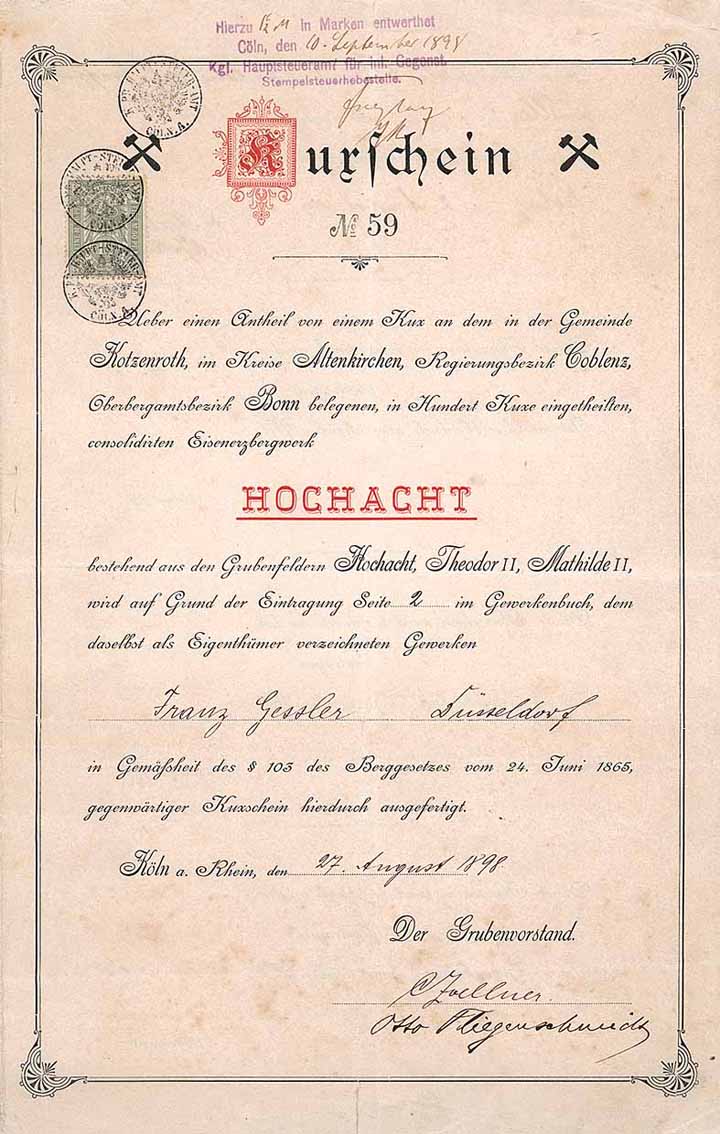 Hierzu 1½ M in Marken entwerthet
Cöln, den 10. September 1898
Kgl. Hauptsteueramt für inl. Gegenst.
Stempelsteuerhebestelle.
CÖLN. A.
Kuxschein
№ 59
CÖLN. A.
CÖLN. A.
Ueber einen Antheil von einem Kux an dem in der Gemeinde
Kotzenroth, im Kreise Altenkirchen, Regierungsbezirk Coblenz,
Oberbergamtsbezirk Bonn belegenen, in Hundert Kuxe eingetheilten,
consolidirten Eisenerzbergwerk
HOCHACHT
bestehend aus den Grubenfeldern Hochacht, Theodor II, Mathilde II,
wird auf Grund der Eintragung Seite 2 im Gewerkenbuch, dem
daselbst als Eigenthümer verzeichneten Gewerken
Franz Gessler Düsseldorf
in Gemäßheit des § 103 des Berggesetzes vom 24. Juni 1865,
gegenwärtiger Kuxschein hierdurch ausgefertigt.
Köln a. Rhein, den 27. August 1898
Der Grubenvorstand.
C Zoellner.
Otto Fliegenschmidt